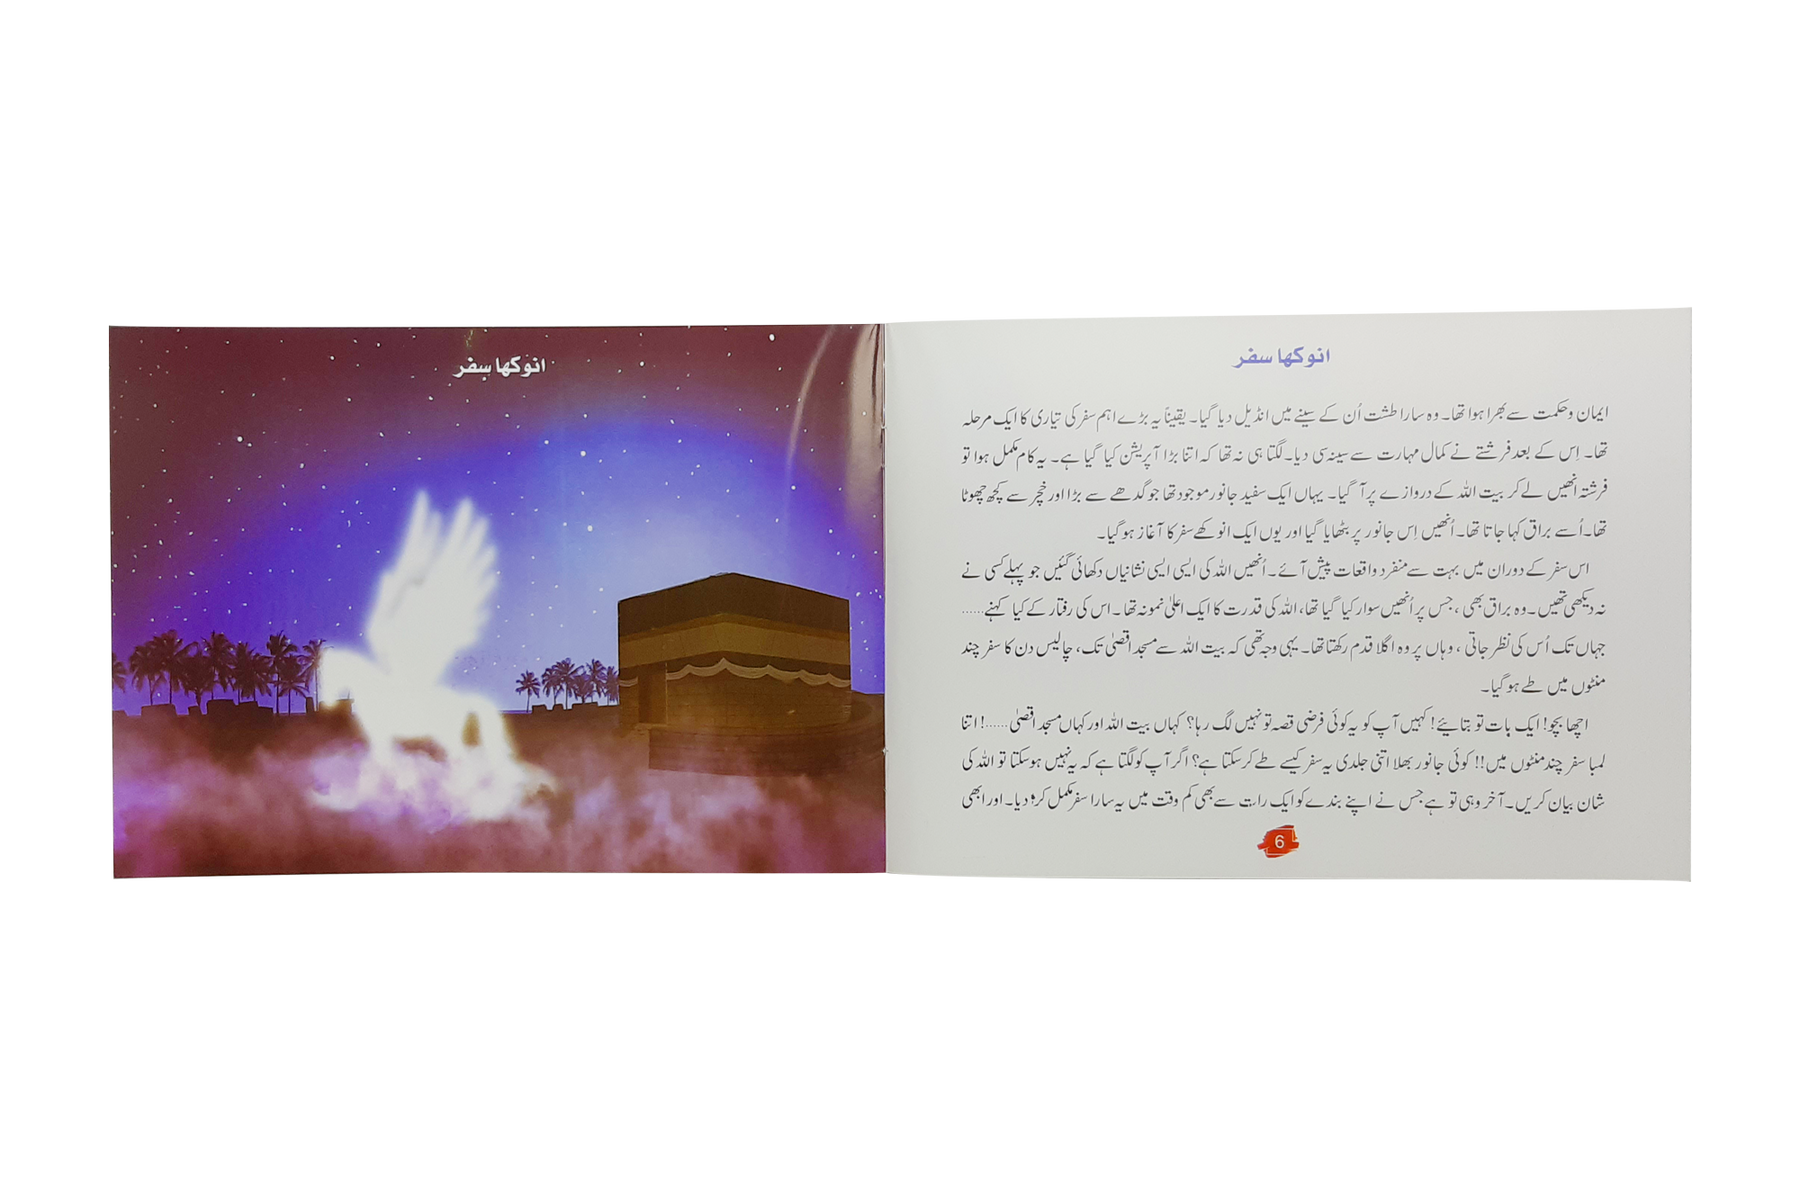 انوکھا سفر
انوکھا سفر
ایمان و حکمت سے بھرا ہوا تھا۔ وہ سارا طشت اُن کے سینے میں انڈیل دیا گیا۔ یقیناً یہ بڑے اہم سفر کی تیاری کا ایک مرحلہ
تھا۔ اِس کے بعد فرشتے نے کمال مہارت سے سینہ سی دیا۔ لگتا ہی نہ تھا کہ اتنا بڑا آپریشن کیا گیا ہے۔ یہ کام مکمل ہوا تو
فرشتہ انھیں لے کر بیت اللہ کے دروازے پر آ گیا۔ یہاں ایک سفید جانور موجود تھا جو گدھے سے بڑا اور خچر سے کچھ چھوٹا
تھا۔ اُسے براق کہا جاتا تھا۔ اُنھیں اِس جانور پر بٹھایا گیا اور یوں ایک انوکھے سفر کا آغاز ہو گیا۔
اس سفر کے دوران میں بہت سے منفرد واقعات پیش آئے۔ اُنھیں اللہ کی ایسی ایسی نشانیاں دکھائی گئیں جو پہلے کسی نے
نہ دیکھی تھیں۔ وہ براق بھی، جس پر اُنھیں سوار کیا گیا تھا، اللہ کی قدرت کا ایک اعلیٰ نمونہ تھا۔ اس کی رفتار کے کیا کہنے......
جہاں تک اُس کی نظر جاتی، وہاں پر وہ اگلا قدم رکھتا تھا۔ یہی وجہ تھی کہ بیت اللہ سے مسجد اقصیٰ تک، چالیس دن کا سفر چند
منٹوں میں طے ہو گیا۔
اچھا بچو! ایک بات تو بتائیے! کہیں آپ کو یہ کوئی فرضی قصہ تو نہیں لگ رہا؟ کہاں بیت اللہ اور کہاں مسجد اقصیٰ......! اتنا
لمبا سفر چند منٹوں میں!! کوئی جانور بھلا اتنی جلدی یہ سفر کیسے طے کر سکتا ہے؟ اگر آپ کو لگتا ہے کہ یہ نہیں ہو سکتا تو اللہ کی
شان بیان کریں۔ آخر وہی تو ہے جس نے اپنے بندے کو ایک رات سے بھی کم وقت میں یہ سارا سفر مکمل کرا دیا۔ اور ابھی
6